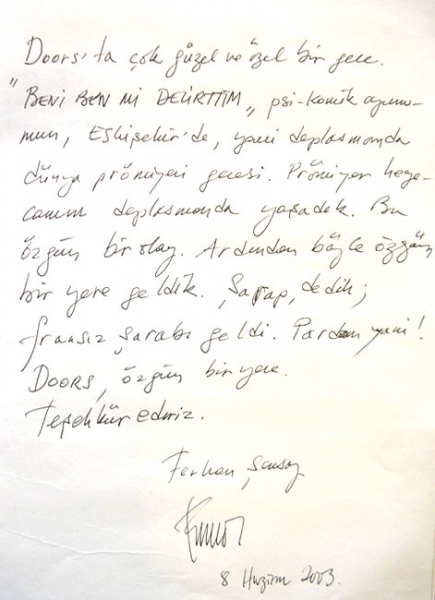 Doors'ta çok güzel ve özel bir gece.
"BENİ BEN Mİ DELİRTTİM„ psi-komik oyunu-
mun, Eskişehir'de, yani deplasmanda
dünya prömiyeri gecesi. Prömiyer heye-
canını deplasmanda yaşadık. Bu
özgün bir olay. Ardından böyle özgün
bir yere geldik. Şarap, dedik;
fransız şarabı geldi. Pardon yani!
DOORS, özgün bir yer.
Teşekkür ederiz.
Ferhan Şensoy
8 Haziran 2003.